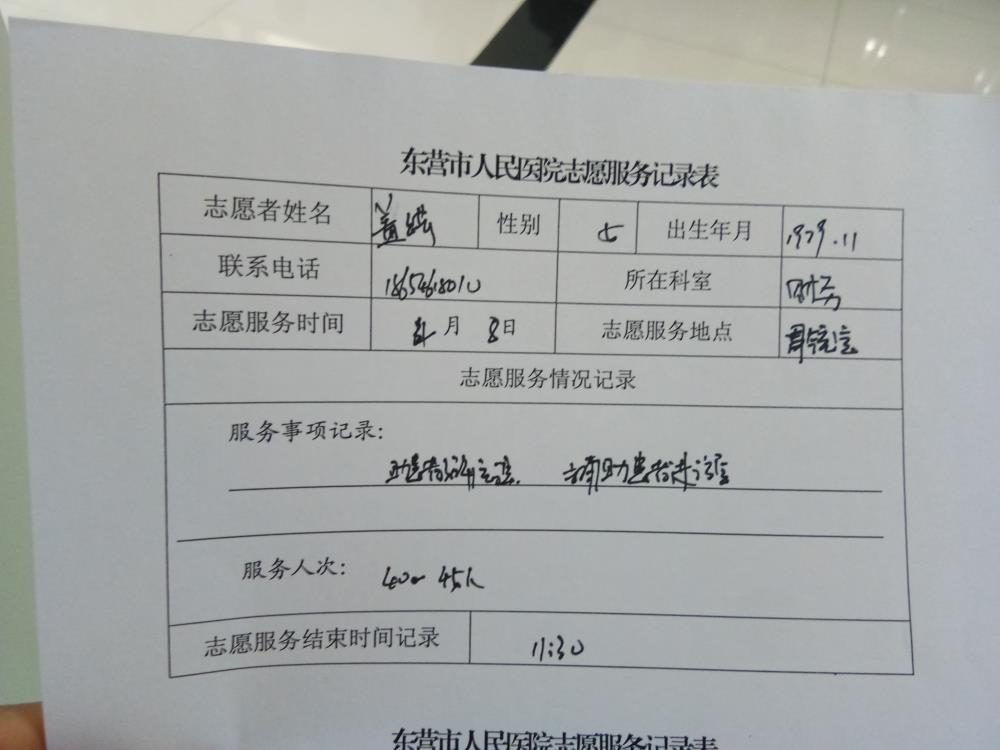 东营市人民医院志愿服务记录表
志愿者姓名 盖 性别 女 出生年月 1979.11
联系电话 所在科室 财务
志愿服务时间 月 8日 志愿服务地点
志愿服务情况记录
服务事项记录:
助患者 患者
服务人次: 40~45人
志愿服务结束时间记录 11:30
东营市人民医院志愿服务记录表